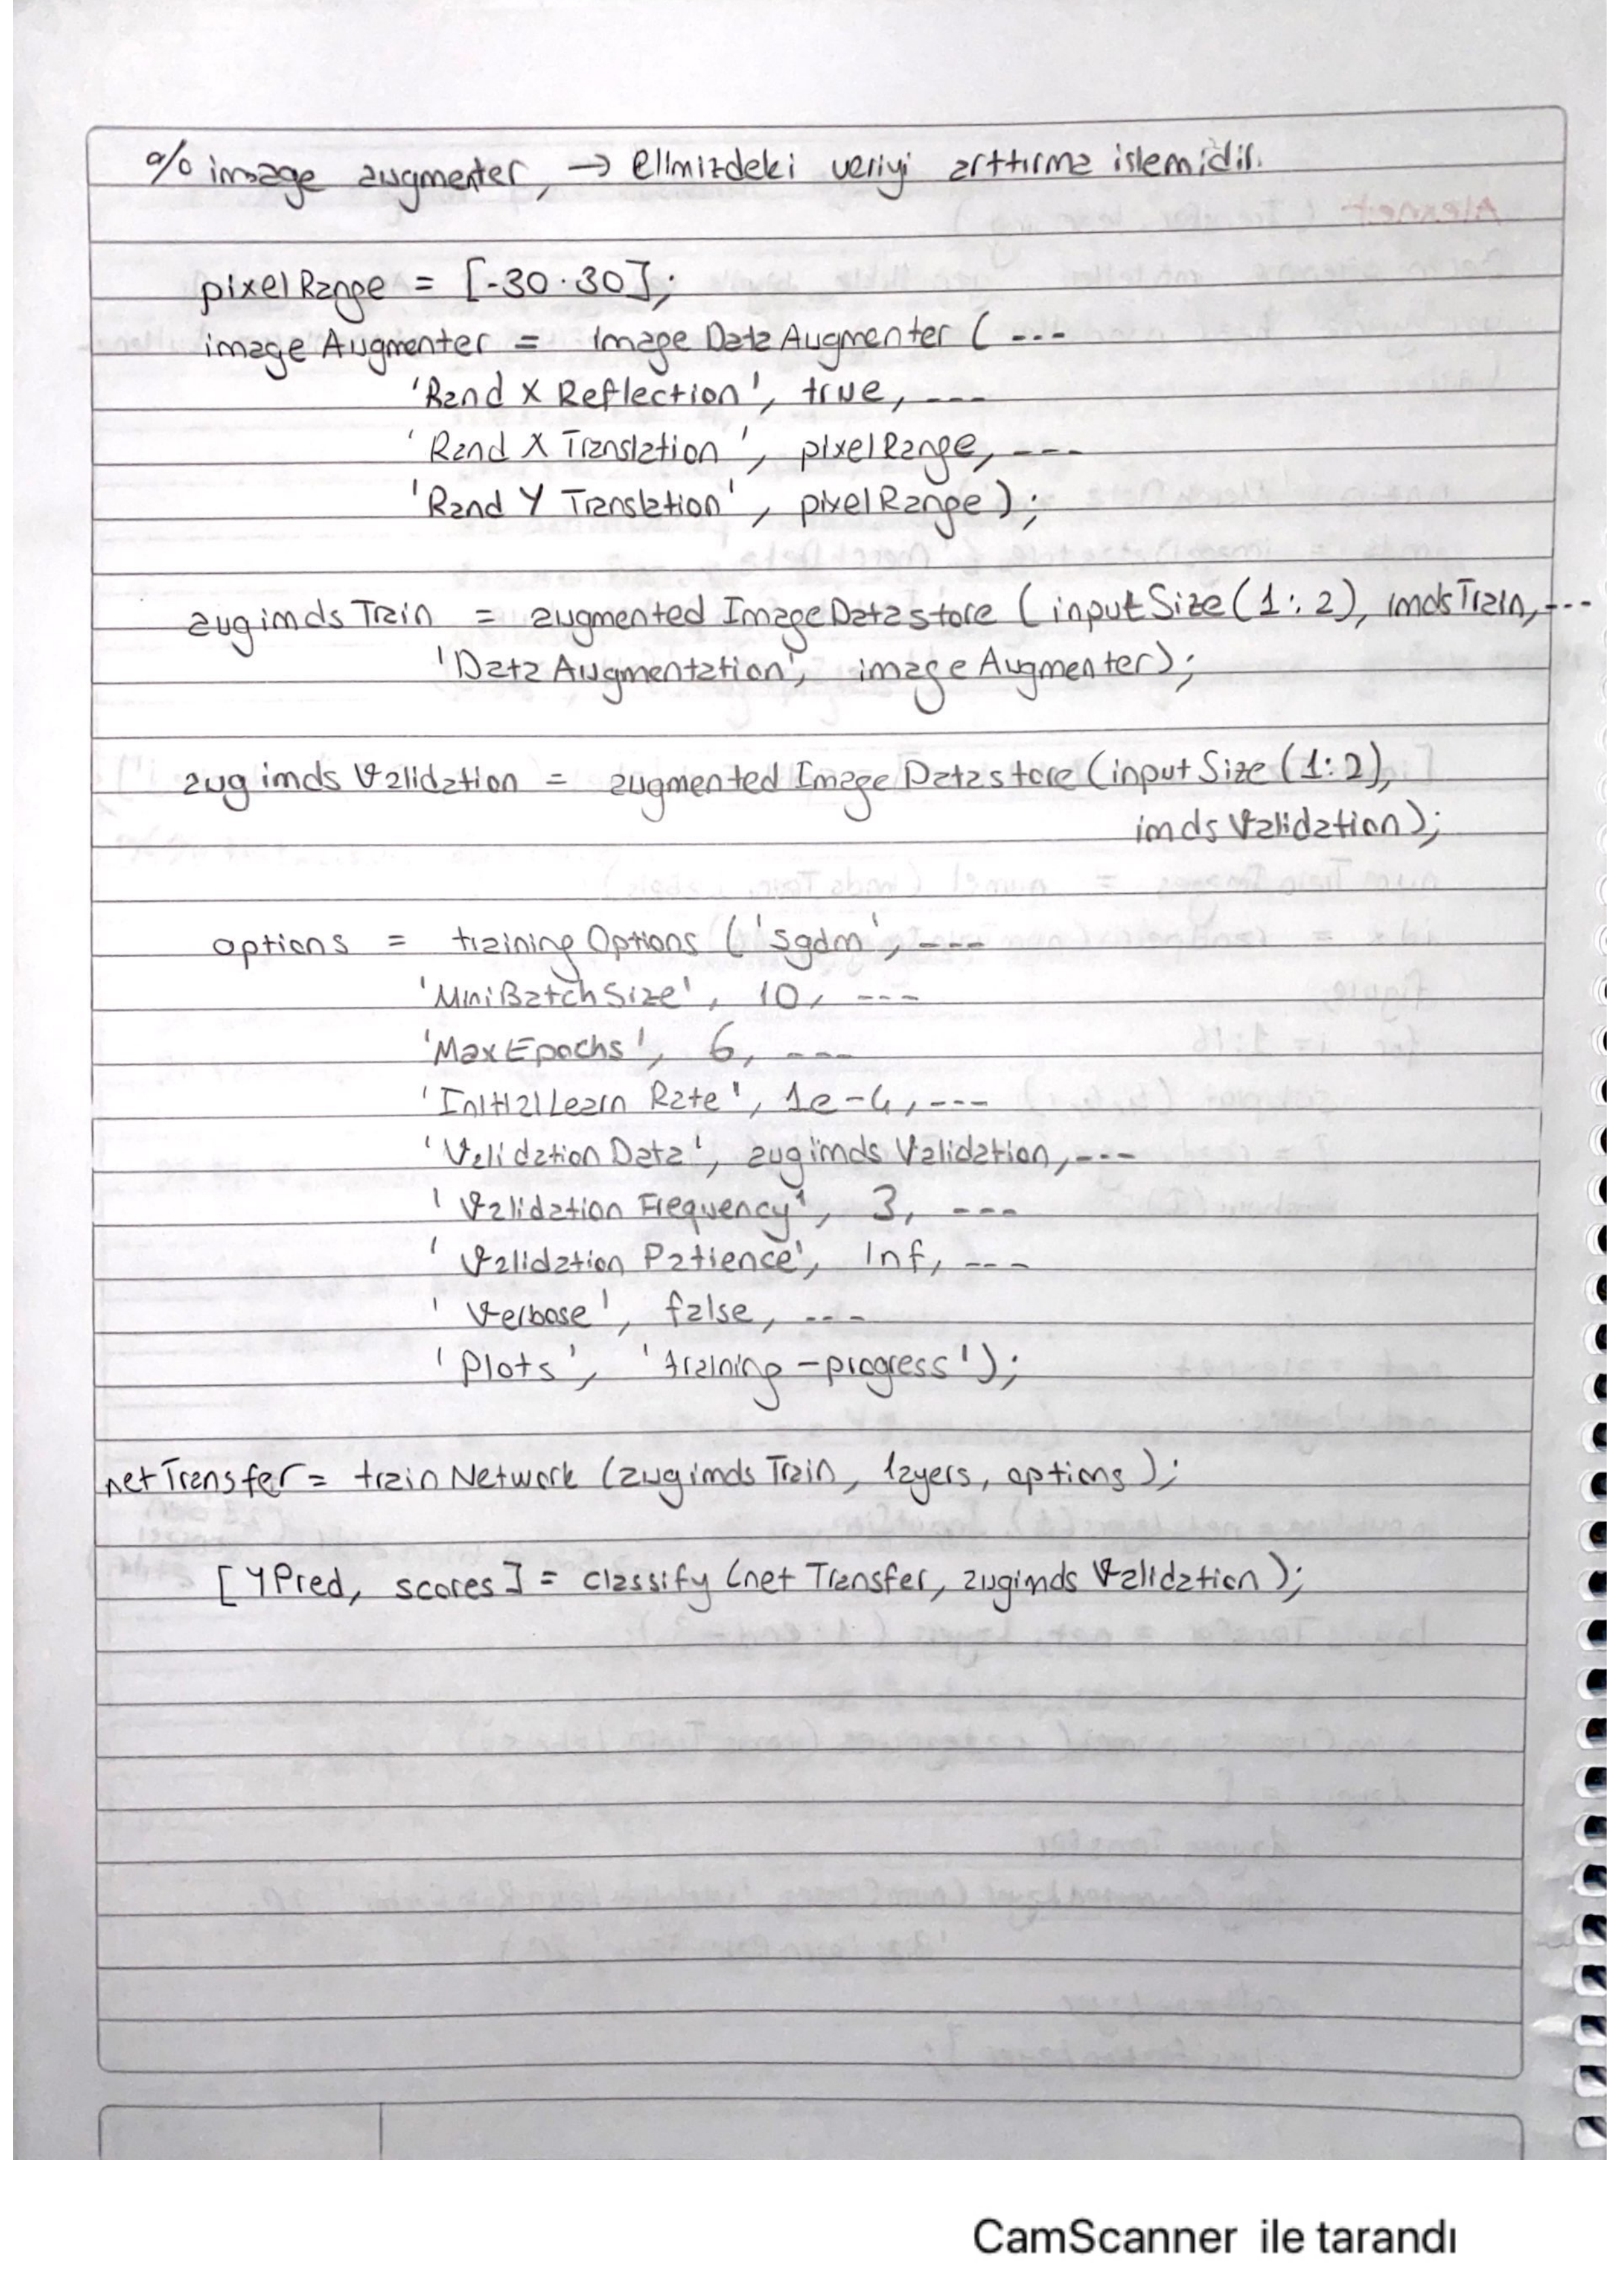 % image augmenter, → Elimizdeki veriyi arttırma islemidir.
pixelRange = [-30 . 30];
imageAugmenter = ImageDataAugmenter ( ---
'Rand X Reflection', true, ---
'Rand X Translation', pixelRange, ---
'Rand Y Translation', pixelRange );
augimdsTrain = augmented ImageDatastore ( inputSize(1:2), imdsTrain, ---
'Data Augmentation', imageAugmenter);
augimds Validation = augmented Image Datastore (input Size (1:2),
imds Validation);
options = training Options ('sgdm', ---
'MiniBatchSize', 10, ---
'MaxEpochs', 6, ---
'InitialLearn Rate', 1e-4, ---
'Validation Data', augimds Validation, ---
'Validation Frequency', 3, ---
'Validation Patience', Inf, ---
'Verbose', false, ---
'Plots', 'training-progress');
netTransfer = train Network (augimds Train, layers, options );
[YPred, scores] = classify (net Transfer, augimds Validation);
CamScanner ile tarandı